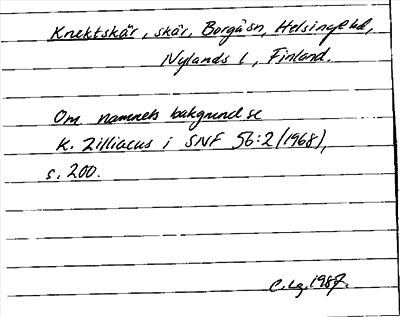 Knektskär, skär, Borgåsn, Helsinge hd,
Nylands l, Finland.
Om namnets bakgrund se
K. Zilliacus i SNF 56:2 (1968),
s. 200.
C. Lg. 1987.